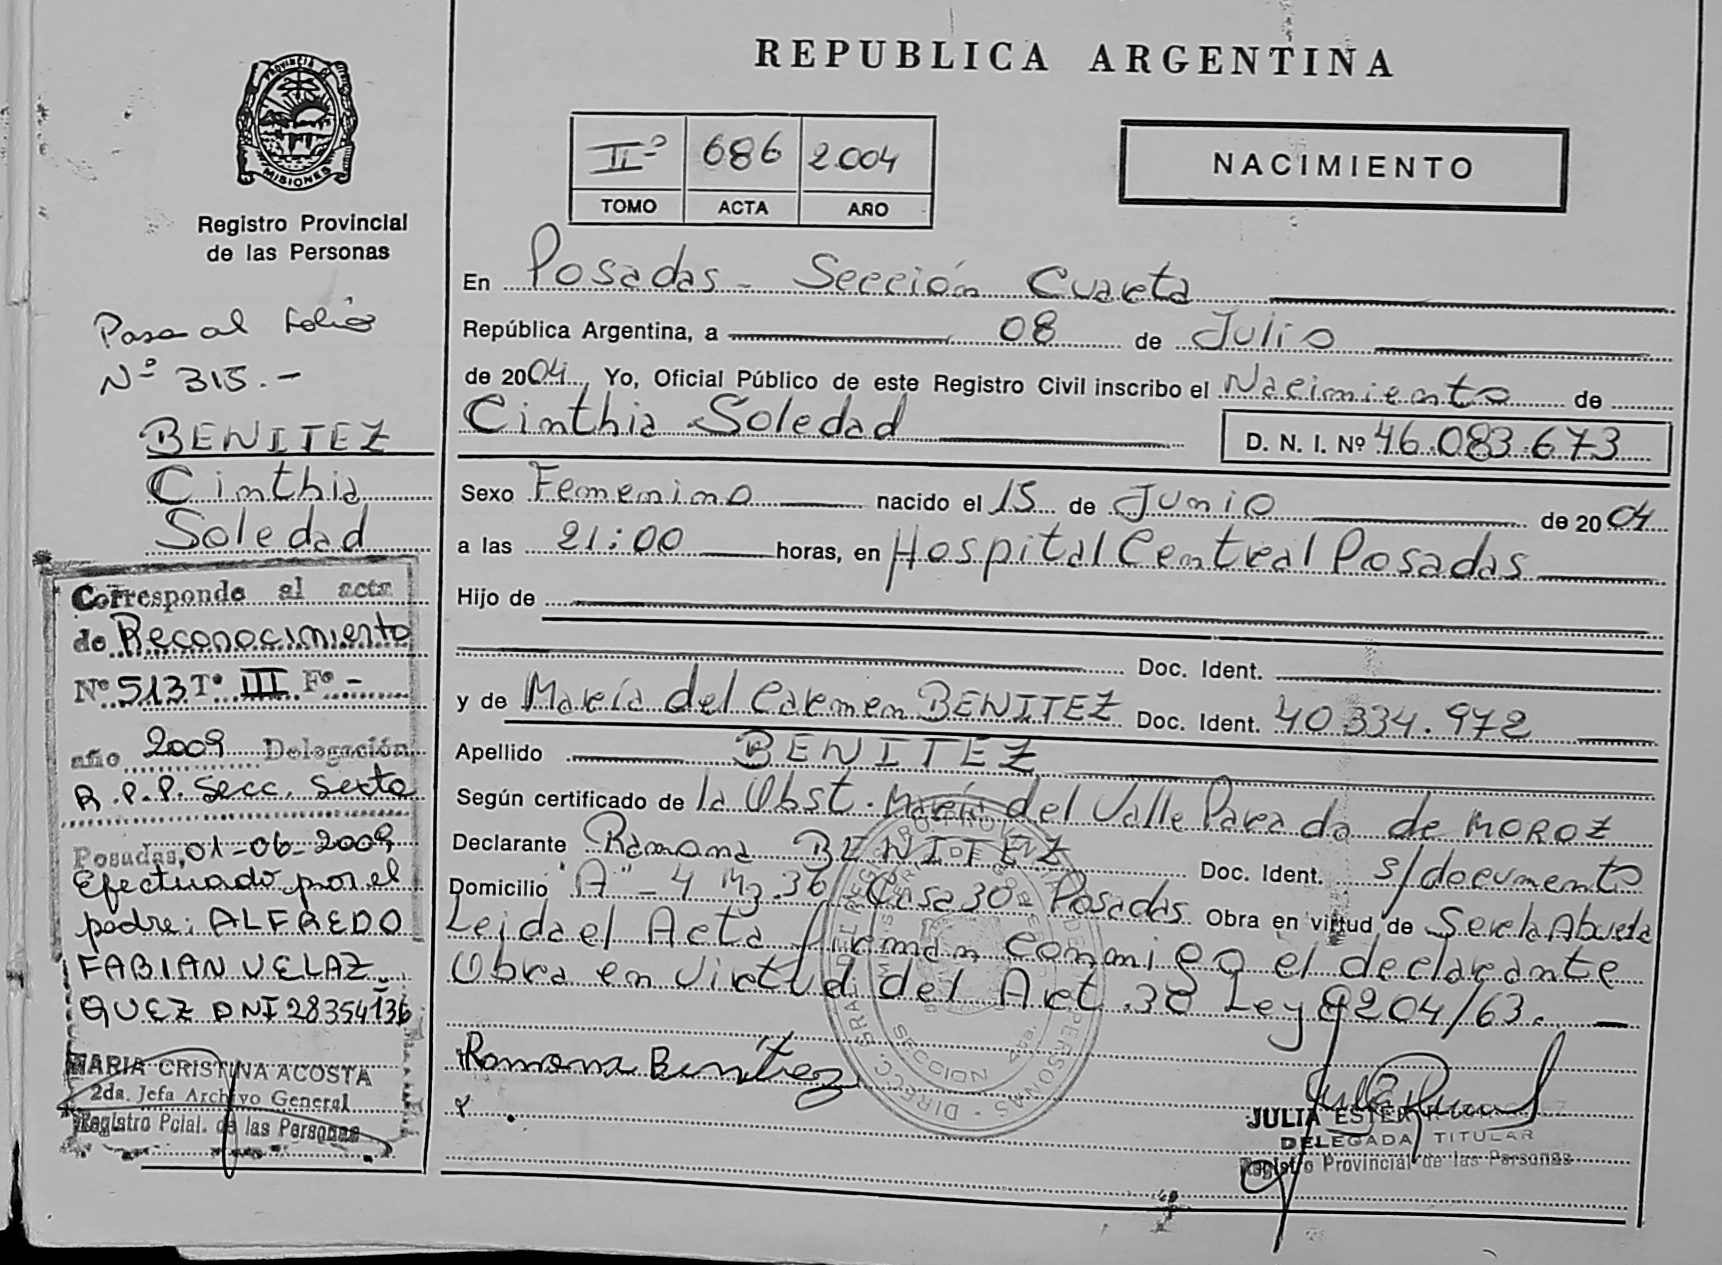 REPUBLICA ARGENTINA
PROVINCIA DE
MISIONES
Registro Provincial
de las Personas
IIº 686 2004
TOMO ACTA AÑO
NACIMIENTO
Pasa al folio
Nº 315.-
BENITEZ
Cinthia
Soledad
Corresponde al acta
de Reconocimiento
Nº 513 Tº III Fº -
año 2009 Delegación
R.P.P. Secc. Sexta
Posadas, 01-06-2009
Efectuado por el
padre: ALFREDO
FABIAN VELAZ
QUEZ DNI 28354136
MARIA CRISTINA ACOSTA
2da. Jefa Archivo General
Registro Pcial. de las Personas
En Posadas - Sección Cuarta
República Argentina, a 08 de Julio
de 2004, Yo, Oficial Público de este Registro Civil inscribo el Nacimiento de
Cinthia Soledad D. N. I. Nº 46.083.673
Sexo Femenino nacido el 15 de Junio de 2004
a las 21:00 horas, en Hospital Central Posadas
Hijo de
Doc. Ident.
y de María del Carmen BENITEZ Doc. Ident. 40334.972
Apellido BENITEZ
Según certificado de la Obst. María del Valle Parada de MOROZ
Declarante Ramona BENITEZ Doc. Ident. s/documento
Domicilio "A"-4 Mz 36 Casa 30 Posadas Obra en virtud de Ser la Abuela
Leida el Acta firman conmigo el declarante
Obra en virtud del Art. 30 Ley 8204/63. -
Ramona Benítez
SECCION 4ta.
JULIA ESTER
DELEGADA TITULAR
Registro Provincial de las Personas